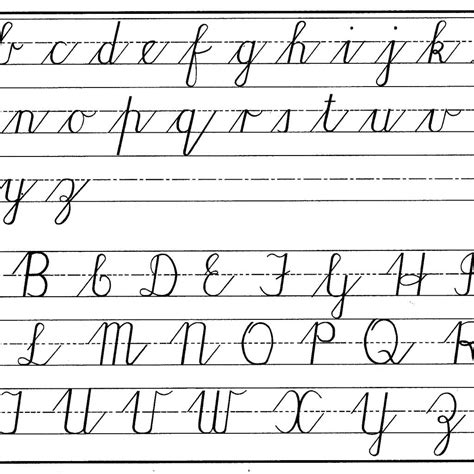 b c d e f g h i j k
n o p q r s t u v
y z
B C D E F G H
L M N O P Q R
T U V W X Y Z